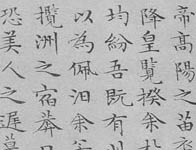 帝高陽之苗
降皇覽揆余
均紛吾既有
以為佩汩余
攬洲之宿莽
恐美人之遲暮